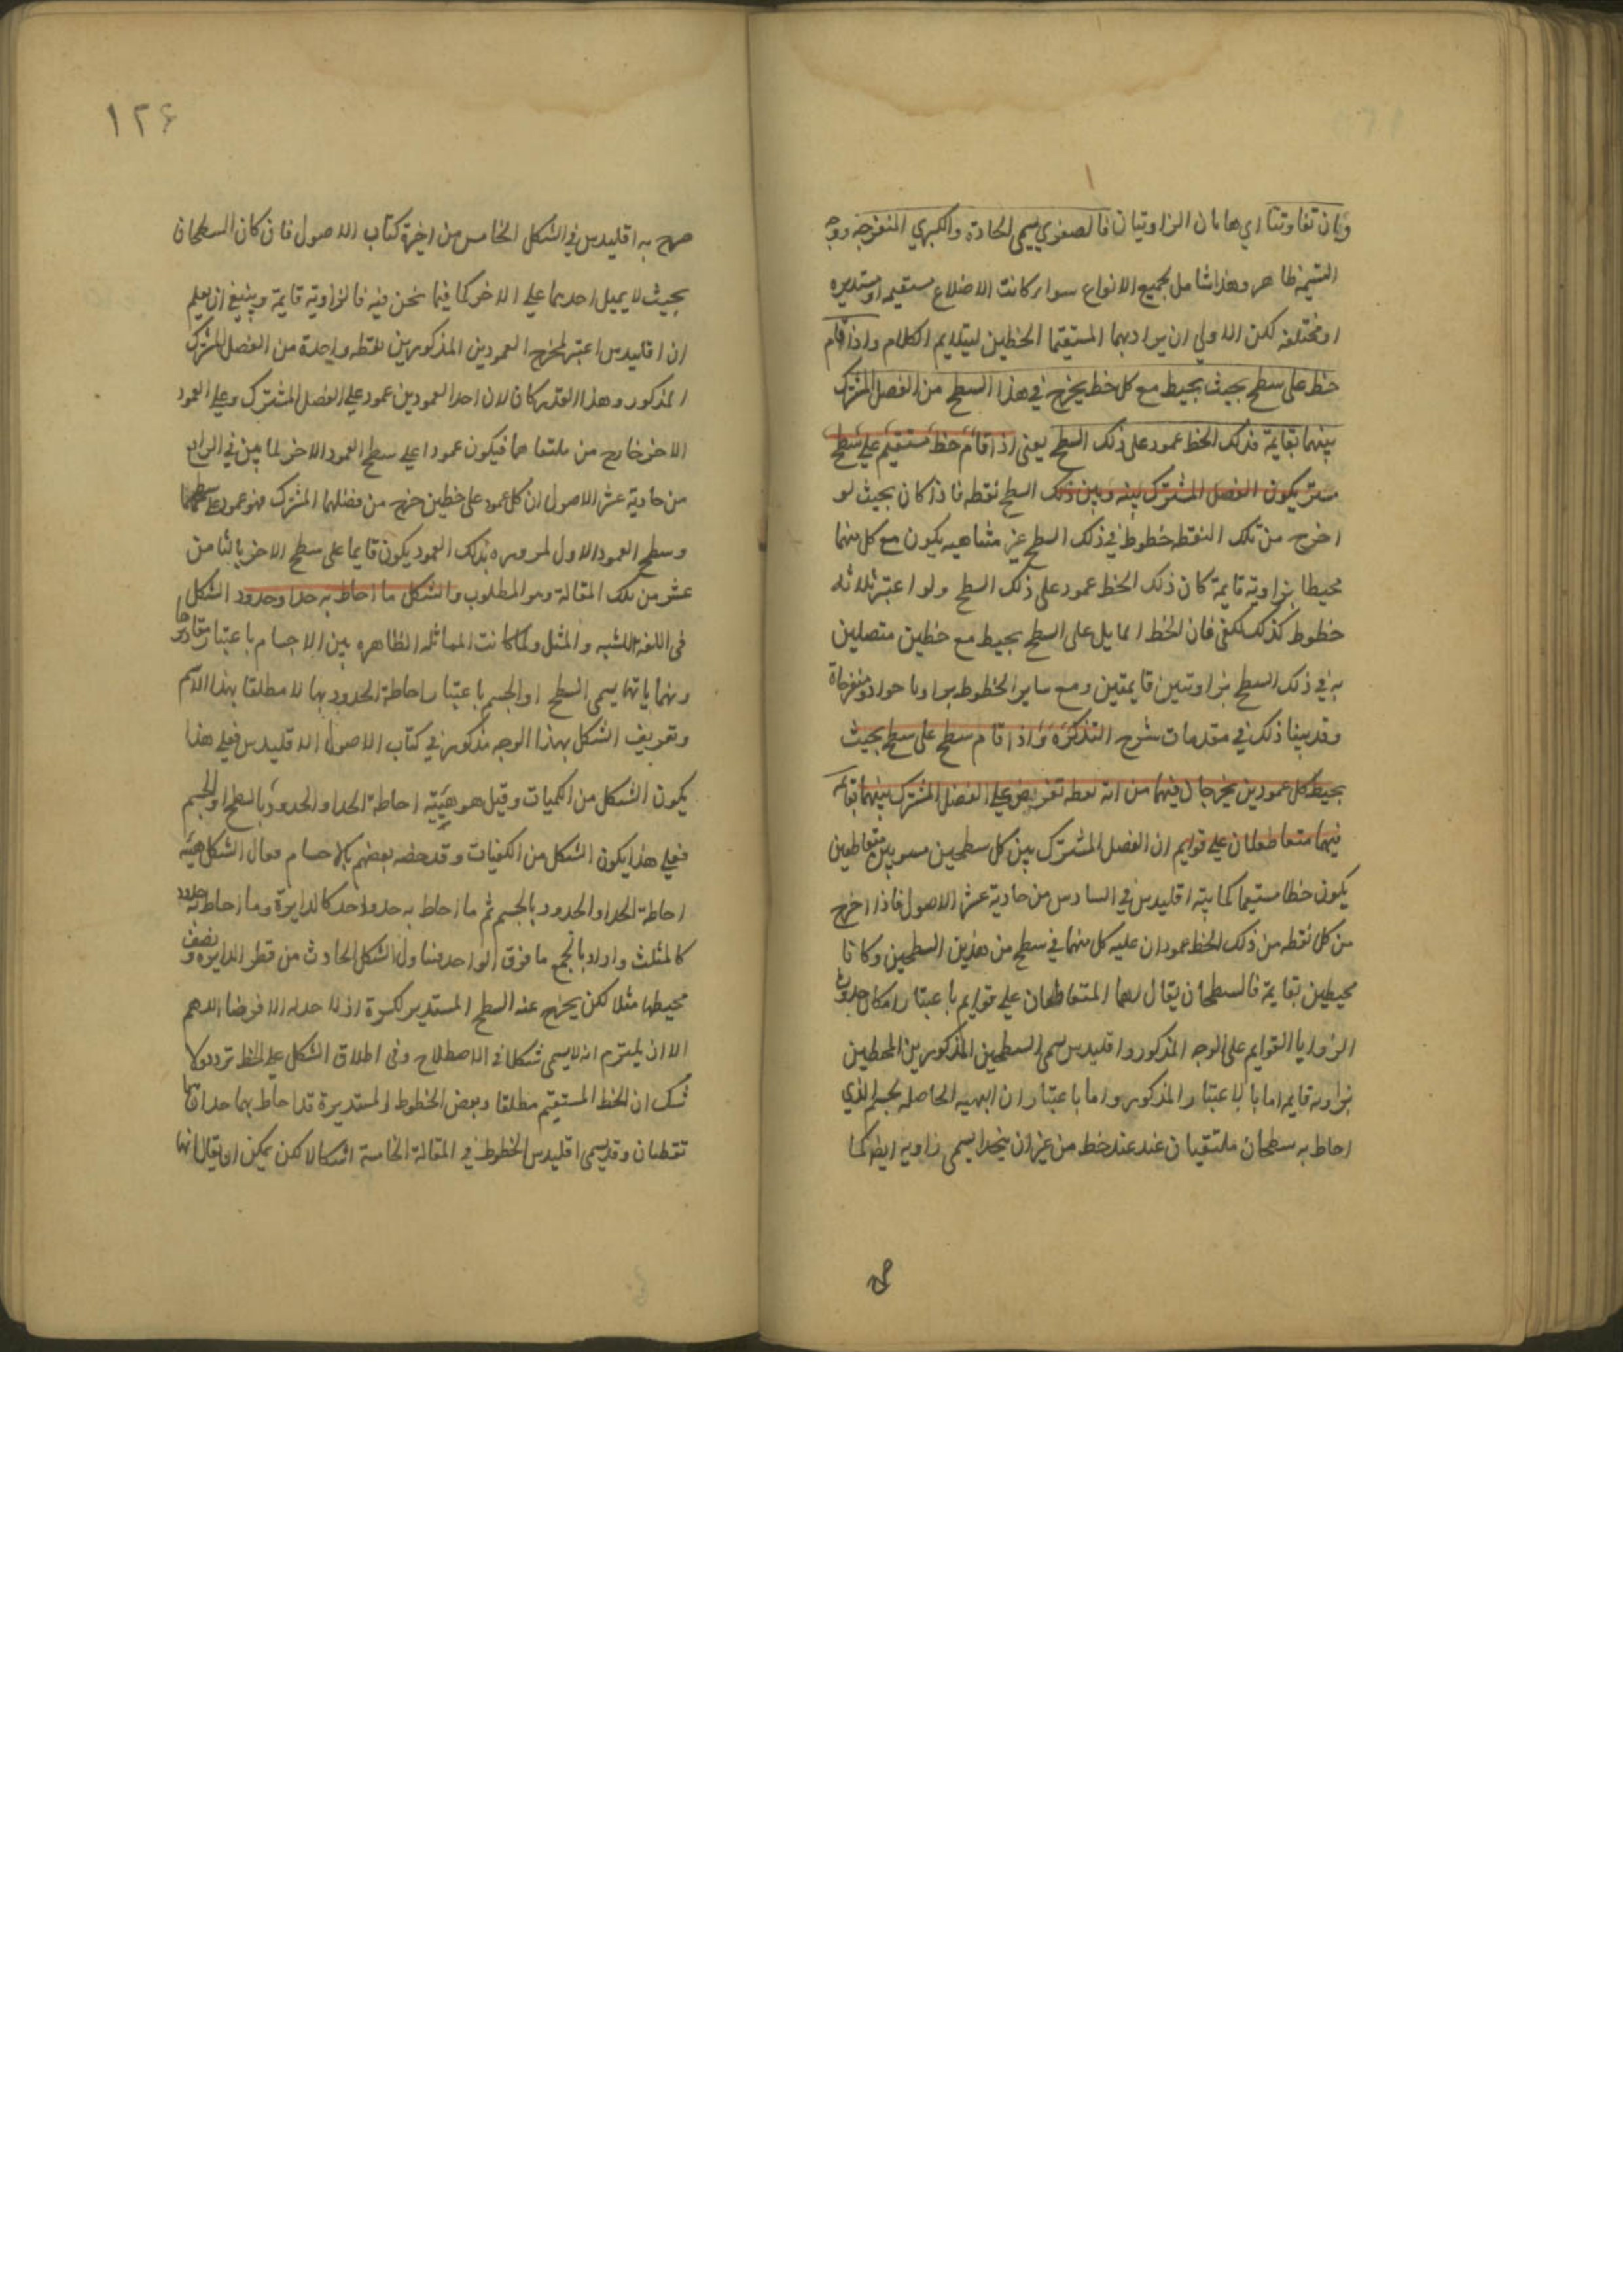 وان تفاوتتا اي هاتان الزاويتان فالصغري يسمى الحادة والكبري المنفرجه ووجه
التسميه ظاهر وهذا شامل لجميع الانواع سواء كانت الاضلاع مستقيمه او مستديره
او مختلفه لكن الاولي ان يراد بهما المستقيما الخطين ليتلايم الكلام واذا قام
خط على سطح بحيث يحيط مع كل خط يخرج في هذا السطح من الفصل المشترك
بينهما بقايمة فذلك الخط عمود على ذلك السطح يعنى اذا قام خط مستقيم علي سطح
مستو يكون الفصل المشترك بينه وبين ذلك السطح نقطه فاذا كان بحيث لو
اخرج من تلك النقطه خطوط في ذلك السطح غير متناهيه يكون مع كل منها
محيطا بزاوية قايمة كان ذلك الخط عمود على ذلك السطح ولو اعتبر ثلاثه
خطوط كذلك لكفى فان الخط المايل على السطح يحيط مع خطين متصلين
به في ذلك السطح بزاويتين قايمتين ومع ساير الخطوط بزوايا حواد ومنفرجاة
وقد بينا ذلك في مقدمات شرح التذكرة واذا قام سطح على سطح بحيث
يحيط كل عمودين يخرجان فيهما من اية نقطه تفرض علي الفصل المشترك بينهما بقائمه
فهما متقاطعان علي قوايم ان الفصل المشترك بين كل سطحين مستويين متقاطعين
يكون خطا مستقيما كما بينه اقليدس في السادس من حادية عشر الاصول فاذا اخرج
من كل نقطه من ذلك الخط عمودان عليه كل منهما في سطح من هذين السطحين وكانا
محيطين بقايمة فالسطحان يقال لهما المتقاطعان علي قوايم باعتبار امكان حدوث
الزوايا القوايم على الوجه المذكور واقليدس سمى السطحين المذكورين المحيطين
بزاوية قايمه اما بالاعتبار المذكور واما باعتبار ان الهيه الحاصله لجسم الذي
احاط به سطحان ملتقيان عند عند خط من غير ان يتحدا يسمى زاويه ايضا كما
١٢۶
صرح به اقليدس في الشكل الخامس من اخيرة كتاب الاصول فان كان السطحان
بحيث لا يميل احدهما علي الاخر كما فيما نحن فيه فالزاوية قايمة وينبغي ان يعلم
ان اقليدس اعتبر لمخرج العمودين المذكورين نقطه واحدة من الفصل المشترك
المذكور وهذا القدر كان لان احد العمودين عمود علي الفصل المشترك وعلي العمود
الاخر خارج من ملتقاهما فيكون عمودا علي سطح العمود الاخر لما بين في الرابع
من حادية عشر الاصول ان كل عمود على خطين خرج من فصلهما المشترك فهو عمود على سطحهما
وسطح العمود الاول لمروره بذلك العمود يكون قايما على سطح الاخر بالثامن
عشر من تلك المقالة وهو المطلوب والشكل ما احاط به حد او حدود الشكل
في اللغه الشبه والمثل ولما كانت المماثله الظاهره بين الاجسام باعتبار مقاديرها
ونهاياتها يسمى السطح او الجسم باعتبار احاطة الحدود بها لا مطلقا بهذا الاسم
وتعريف الشكل بهذا الوجه مذكور في كتاب الاصول لاقليدس فعلي هذا
يكون الشكل من الكميات وقيل هو هيئة احاطة الحد او الحدود بالسطح او الجسم
فعلي هذا يكون الشكل من الكيفيات وقد خصه بعضهم بالاجسام فقال الشكل هيئه
احاطة الحد او الحدود بالجسم ثم ما احاط به حد واحد كالدايرة وما احاط به حدود
كالمثلث واراد بالجمع ما فوق الواحد فيتناول الشكل الحادث من قطر الدايره ونصف
محيطها مثلا لكن يخرج عنه السطح المستدير لكرة اذ لا حد له الا فرضا اللهم
الا ان يلتزم انه لا يسمى شكلا في الاصطلاح وفى اطلاق الشكل على الخط تردد ولا
شك ان الخط المستقيم مطلقا وبعض الخطوط المستديرة قد احاط بهما حدا هما
نقطتان وقد يسمى اقليدس الخطوط في المقالة الخامسة اشكالا لكن يمكن ان يقال انها